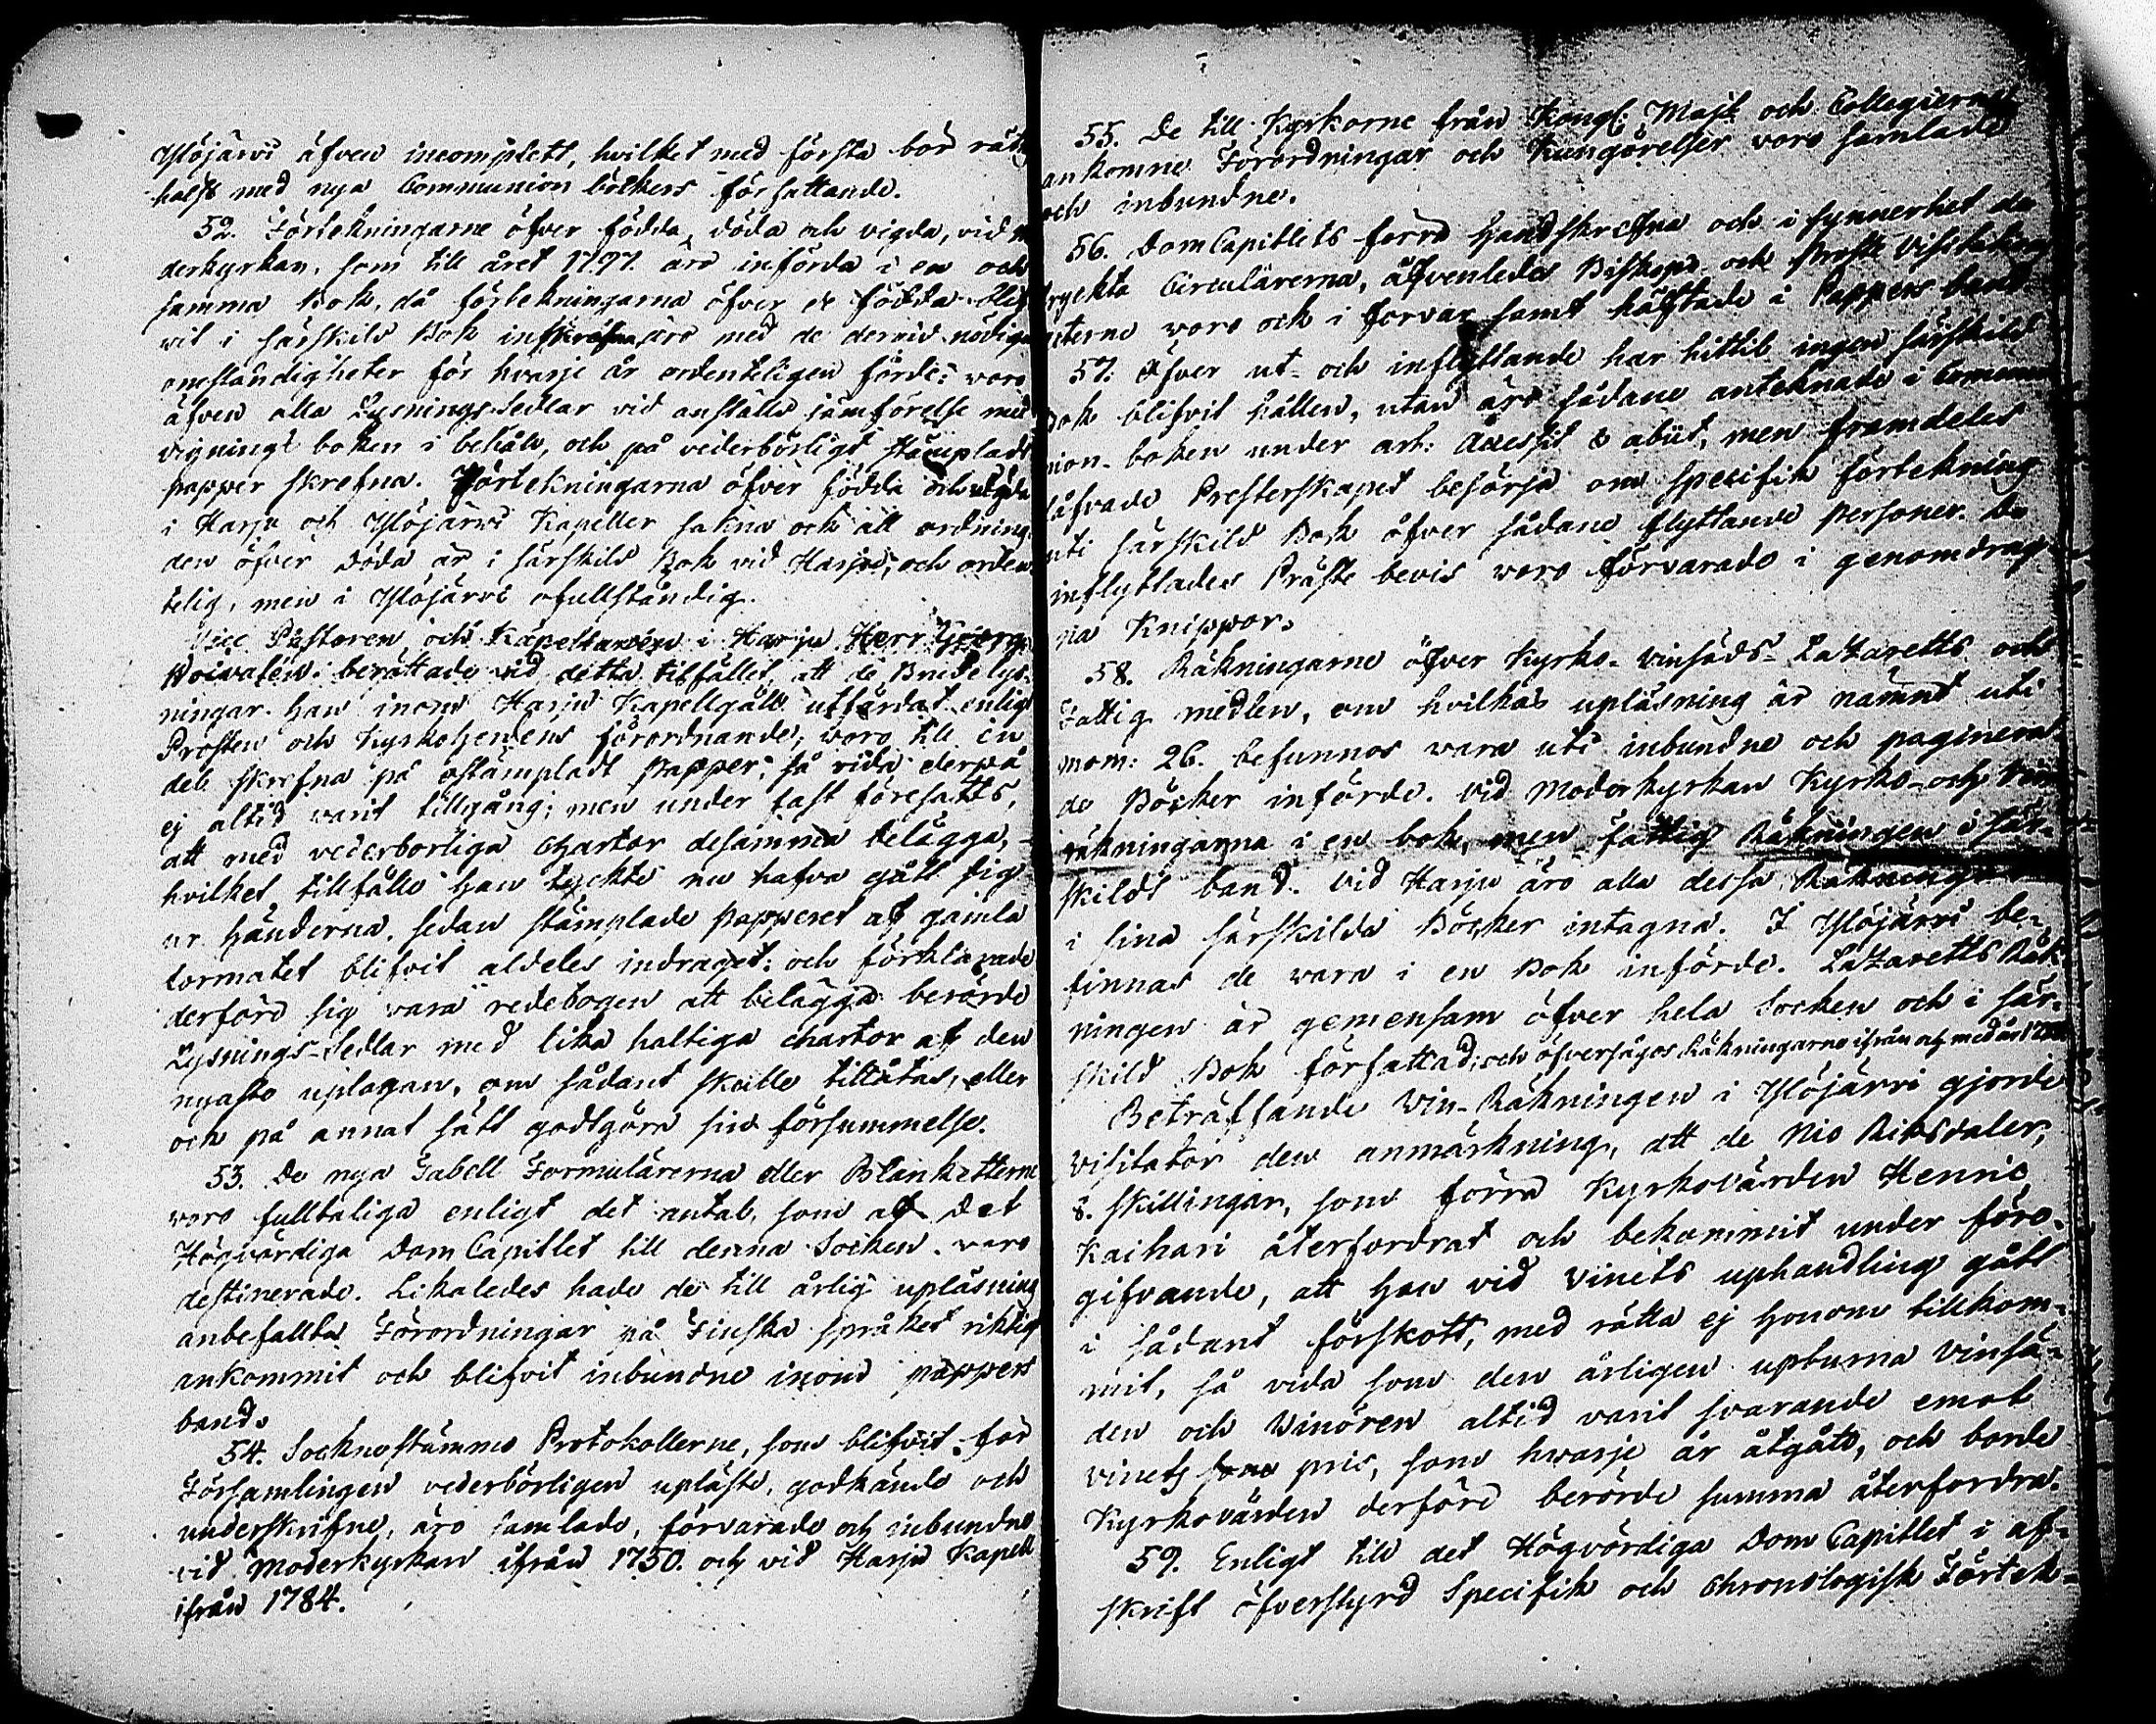 Ylöjärvi äfven incomplett, hvilket med första bör rät-
hals med nya Communion böckers författande.
52. Förtekningarne öfver födda, döda och vigda, vid mo
derkyrkan, som till året 1797. äro införda i en och
samma Bok, då förtekningarna öfver de födda blif
vit i särskild Bok inskrefna, äro med de dervid nödiga
omständigheter för hvarje år ordenteligen förde: woro
äfven alla Lysnings-Sedlar vid anställd jämförelse med
vignings boken i behåll, och på vederbörligt stämpladt
papper skrefna. Förtekningarna öfver födda och vigda
i Harju och Ylöjärvi Kapeller sakna och all ordning,
den öfver Döda är i särskild Bok vid Harju, och orden-
telig, men i Ylöjärvi ofullständig.
Vice Pastoren och Kapellanen i Harju Herr Georg
berättade vid detta tillfället, att de Brudelys-
ningar han inom Harju Kapellgäll utfärdat enligt
Prostens och Kyrkoherdens förordnande, woro till en
del skrefna på ostämpladt Papper, så vida derpå
ej altid varit tillgång; men under fast föresatts,
att med vederborliga Chartor desamma belägga,
hvilket tillfälle han tyckte nu hafva gått sig
ur händerna, sedan stämplade papperet af gamla
formatet blifvit aldeles indraget: och förklarade
derföre sig vara redebogen att belägga berörde
Lysnings-Sedlar med lika haltiga chartor af den
nyaste uplagan, om sådant skulle tillåtas, eller
och på annat sätt godtgöra sin försummelse.
53. De nya Tabell Formulärerna eller Blanketterne
woro fulltaliga enligt det antal, som af Det
Högvördiga Dom Capitlet till denna Socken voro
destinerade. Likaledes hade de till årlig upläsning
anbefallta Förordningar på Finska språket riktigt
ankommit och blifvit inbundne inom pappers
band.
54. Socknestämmo Protokollerne, som blifvit för
Församlingen vederbörligen upläste, godkände och
underskrifne, äro samlade, förvarade och inbundne
vid Moderkyrkan ifrån 1750. och vid Harju Kapell
ifrån 1784.
55. De till Kyrkorne från Kongl. Majt. och Collegierne
ankomne Förordningar och Kungörelser voro samlade
och inbundne.
56. Dom Capitlets förra Handskrefna och i synnerhet de
tryckta Circulärerna, äfvenledes Biskops- och Prosts Visitations
acterne voro och i förvar samt häftade i Pappers band
57. Öfver ut- och inflyttande har hittils ingen särskild
Bok blifvit hållen, utan äro sådane anteknade i Commu
nion-boken under art: Accessit & abiit, men framdeles
låfvade Presterskapet besörja om specifik förtekning
uti särskild Bok öfver sådane flyttande personer. De
inflyttades Präste bevis voro förvarade i genomdrag-
na Knippor.
58. Räkningarne öfver Kyrko- vinsäds- Lazaretts och
Fattig medlen, om hvilkas upläsning är nämnt uti
mom: 26. befunnos vara uti inbundne och paginera
de Böcker införde. Vid Moderkyrkan Kyrko- och Vin
räkningarna i en bok, men fattig Räkningen i sär-
skildt band. Vid Harju äro alla dessa Räkningar
i sina särskilda Böcker intagna. I Ylöjärvi be-
finnas de vara i en Bok införde. Lazaretts Räk-
ningen är gemensam öfver hela Socken och i sär-
skild Bok författad; och öfversågos Räkningarne ifrån och med år
Beträffande Vin-Räkningen i Ylöjärvi gjorde
Visitator den anmärkning, att de Nio Riksdaler,
8. skillingar, som förra Kyrkovärden Henric
Kaihari återfordrat och bekommit under före-
gifvande, att han vid Vinets uphandling gått
i sådant förskott, med rätta ej honom tillkom-
mit, så vida som den årligen upburna vinsä-
den och Vinören altid varit svarande emot
vinets pris, som hwarje år åtgått, och borde
Kyrkovärden derföre berörde summa återfordras.
59. Enligt till det Högvördiga Dom Capitlet i af-
skrift öfverstyrd Specifik och Chronologisk Förtek-